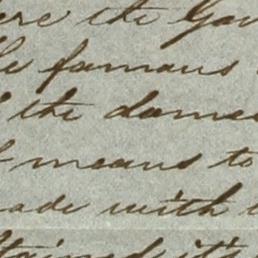 ere the Gov
le famous
the domes
means to
ade with
tained it's